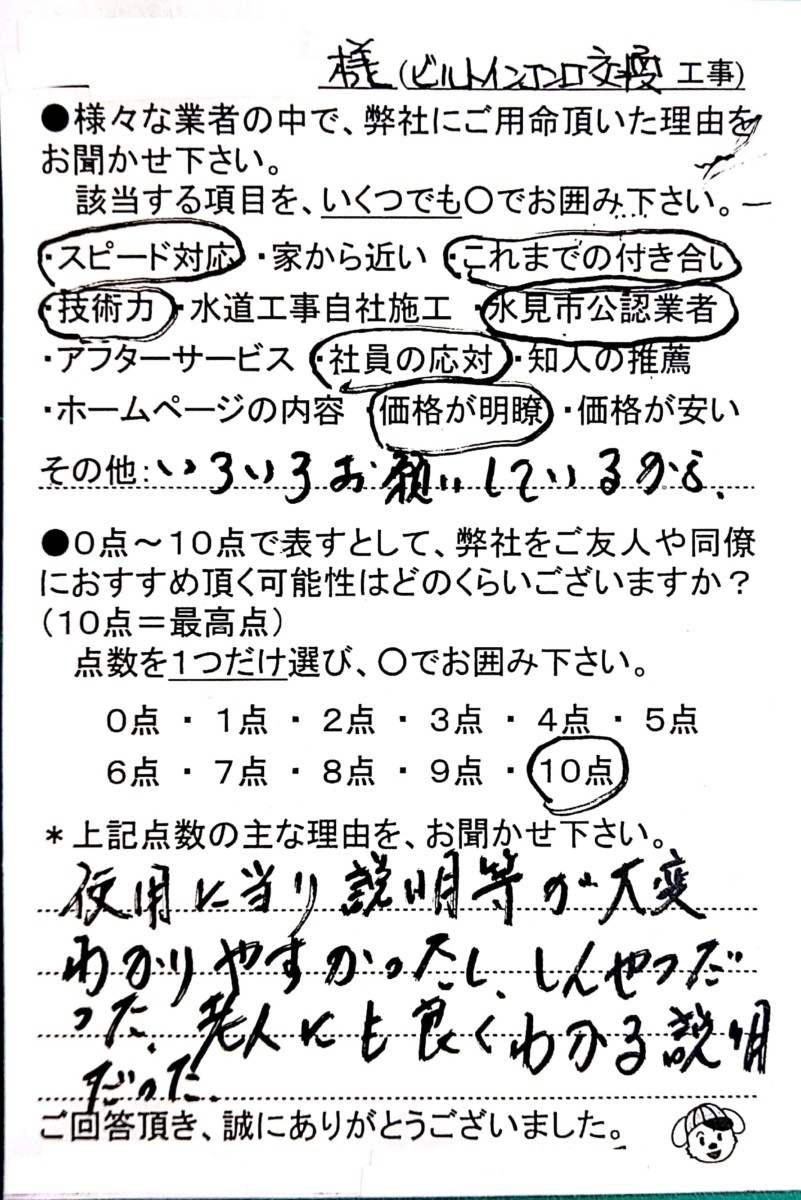 様(ビルトインコンロ交換 工事)
●様々な業者の中で、弊社にご用命頂いた理由を
お聞かせ下さい。
該当する項目を、いくつでも〇でお囲み下さい。
・スピード対応 ・家から近い ・これまでの付き合い
・技術力 ・水道工事自社施工 ・氷見市公認業者
・アフターサービス ・社員の応対 ・知人の推薦
・ホームページの内容 ・価格が明瞭 ・価格が安い
その他:いろいろお願いしているから、
●0点～10点で表すとして、弊社をご友人や同僚
におすすめ頂く可能性はどのくらいございますか?
(10点=最高点)
点数を1つだけ選び、〇でお囲み下さい。
0点 ・ 1点 ・ 2点 ・ 3点 ・ 4点 ・ 5点
6点 ・ 7点 ・ 8点 ・ 9点 ・ 10点
*上記点数の主な理由を、お聞かせ下さい。
使用に当り説明等が大変
わかりやすかったし、しんせつだ
った、老人にも良くわかる説明
だった、
ご回答頂き、誠にありがとうございました。